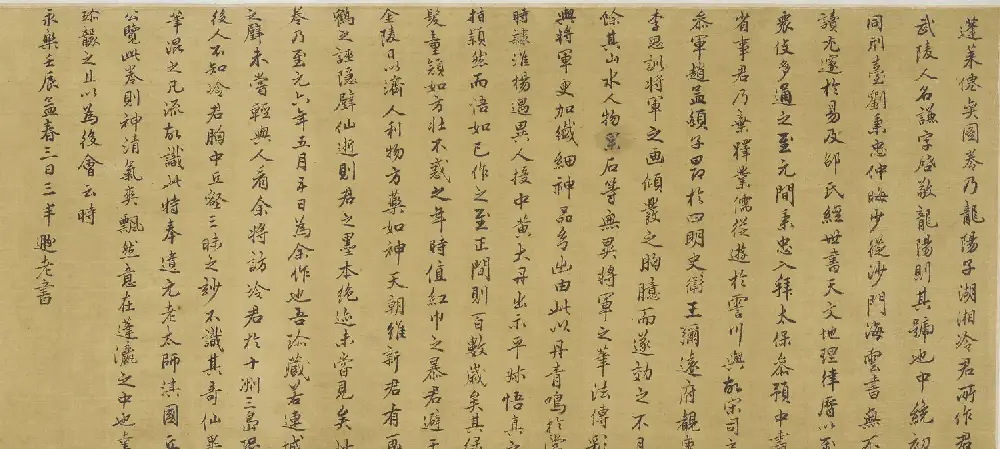 蓬萊僊奕圖卷乃龍陽子湖湘冷君所作君
武陵人名謙字啓敬龍陽則其號也中統初
同邢臺劉秉忠仲晦少從沙門海雲書無不
讀尤邃於易及邵氏經世書天文地理律曆以至
衆伎多通之至元間秉忠入拜太保參預中書
省事君乃棄釋業儒從遊於霅川與故宋司戶
參軍趙孟頫子昂於四明史衛王彌遠府覩唐
李思訓將軍之画傾發之胸臆而遂効之不月
餘其山水人物窠石等無異將軍之筆法傅彩
與將軍更加纖細神品多幽由此以丹青鳴於當
時隸淮揚遇異人授中黃大丹出示平叔悟真之
拍頴然而悟如已作之至正間則百數歲矣其綠
髮童顏如方壯不惑之年時值紅巾之暴君避于
金陵日以濟人利物方藥如神天朝維新君有画
鶴之誣隱壁仙逝則君之墨本絕迹未嘗見矣此
卷乃至元六年五月五日為余作也吾珍藏若連城
之璧未嘗輕與人看余將訪冷君於十洲三島恐
後人不知冷君胸中丘壑三昧之妙不識其奇仙異
筆混之凡流故識此特奉遺元老太師淇國丘
公覽此卷則神清氣爽飄然意在蓬瀛之中也幸
珍襲之且以為後會云時
永樂壬辰孟春三日三丰遯老書